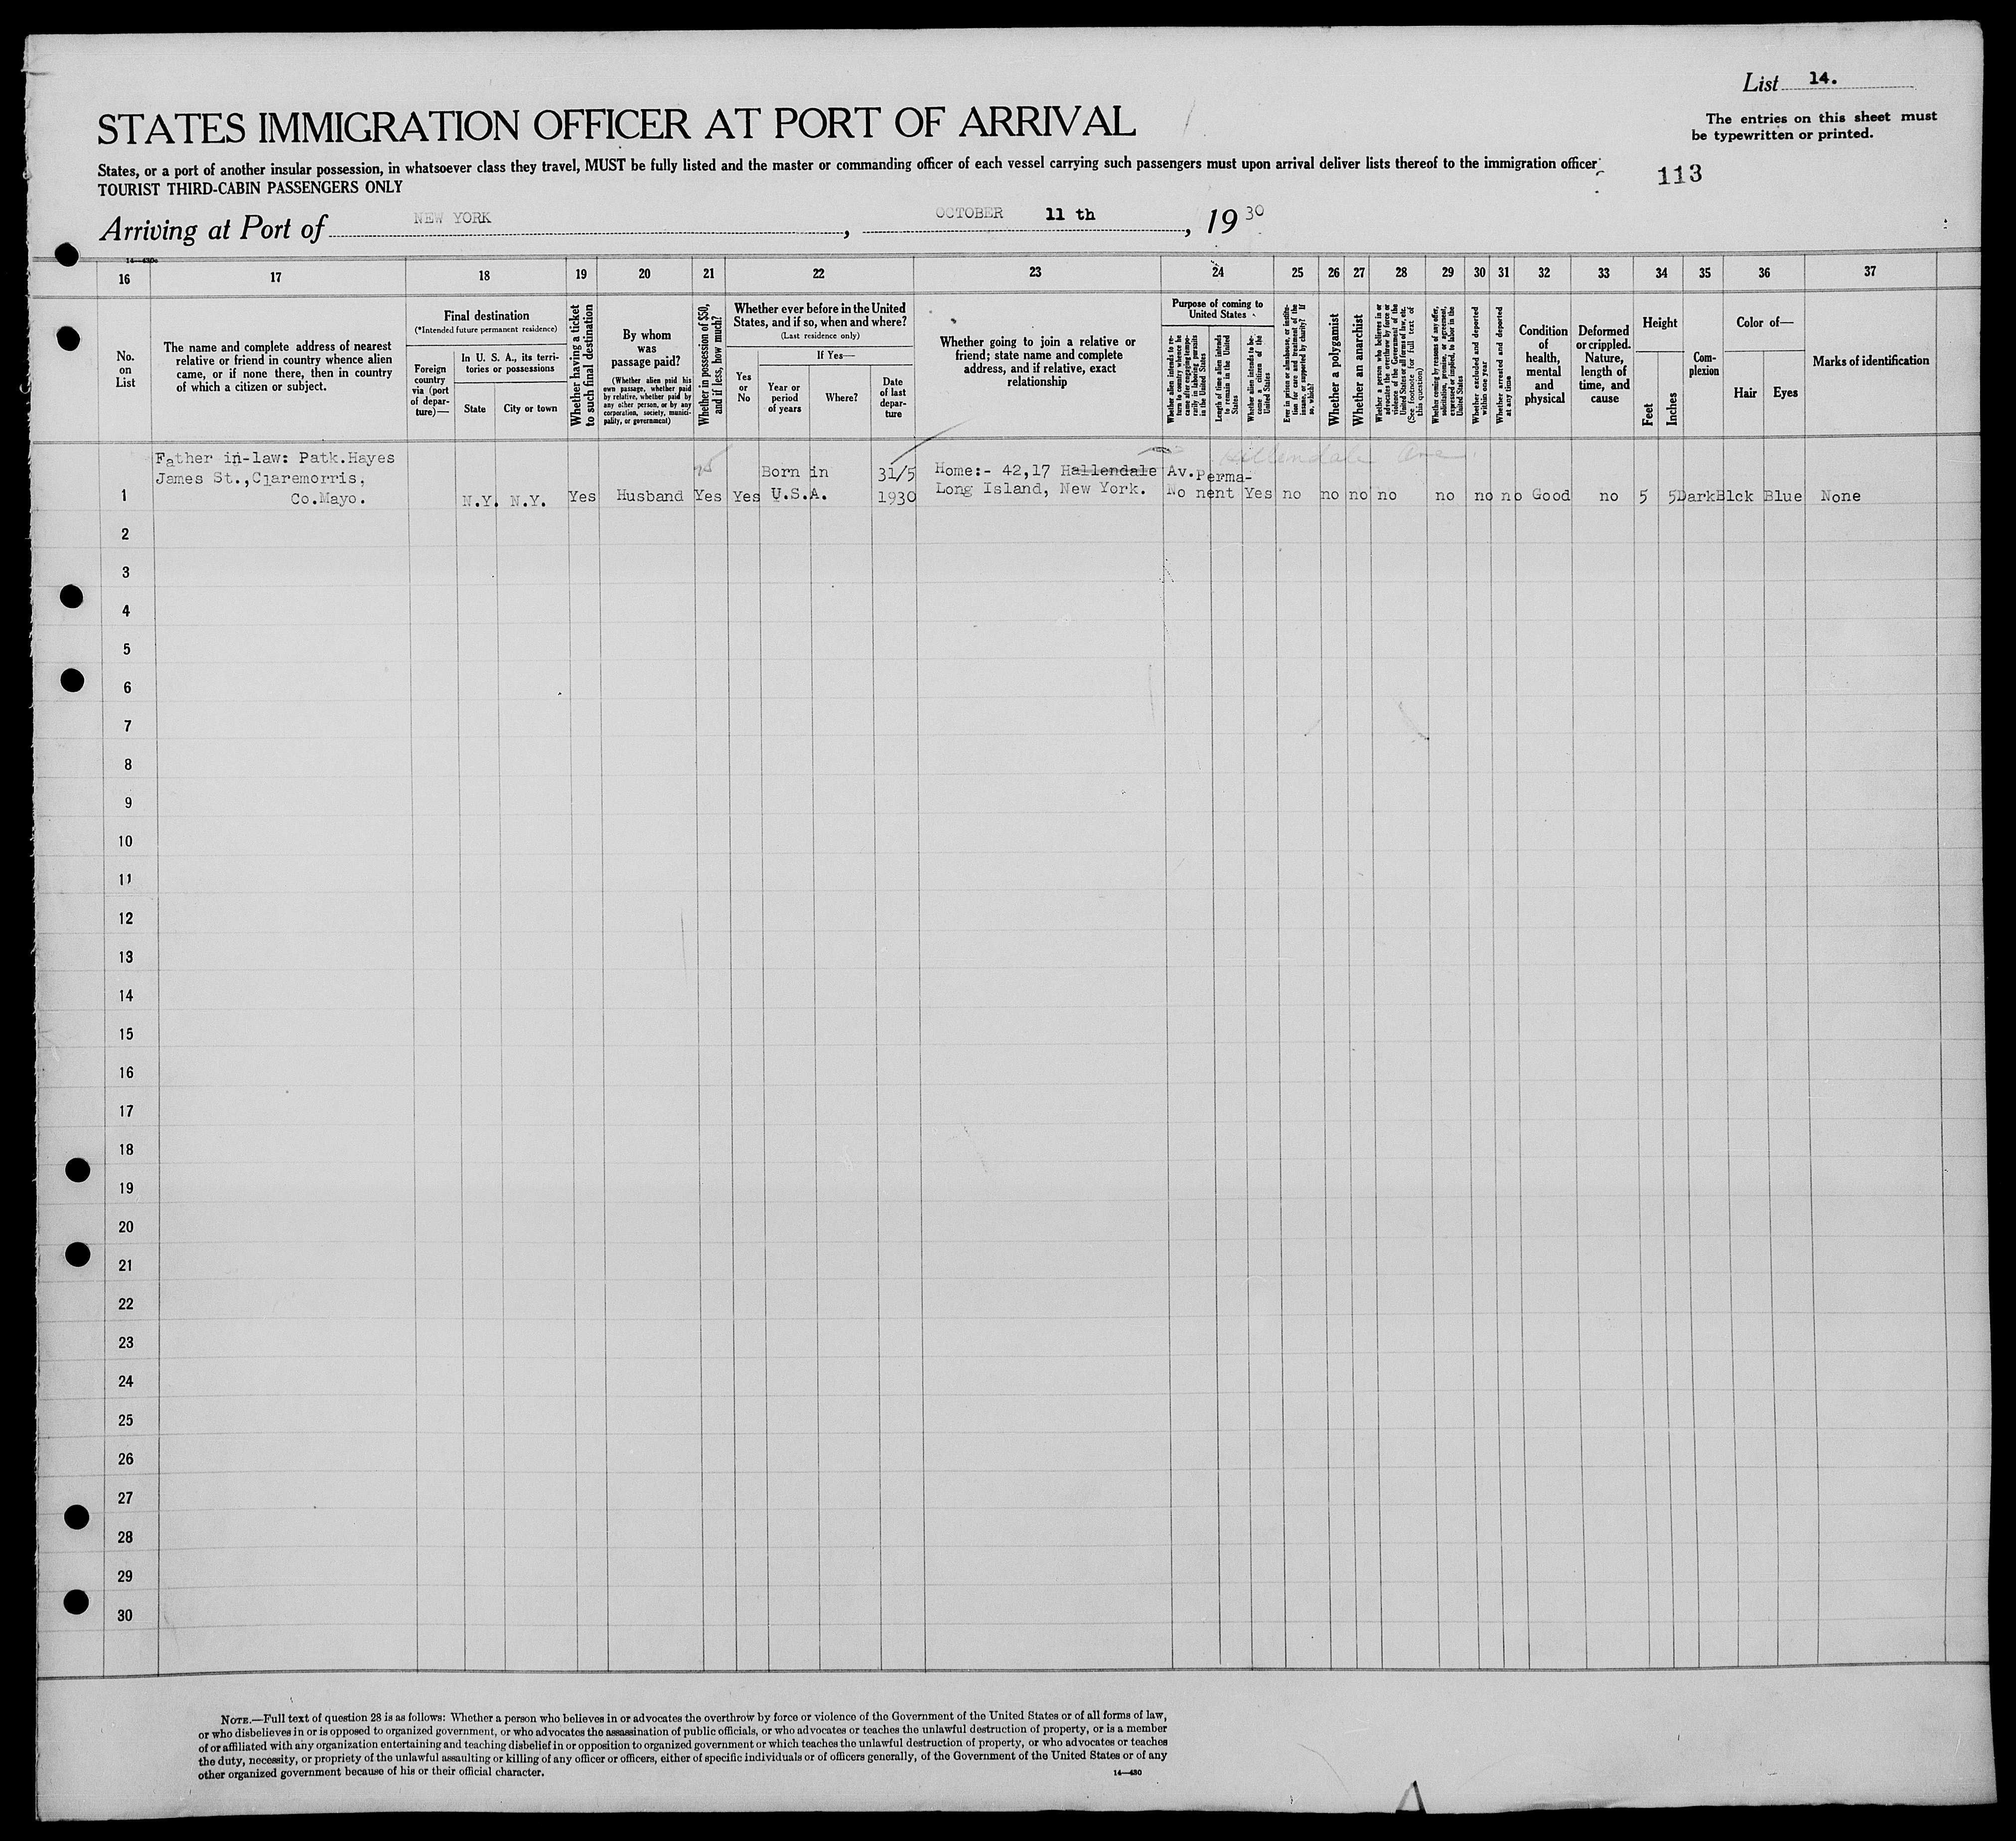 List 14.
STATES IMMIGRATION OFFICER AT PORT OF ARRIVAL
The entries on this sheet must
be typewritten or printed.
States, or a port of another insular possession, in whatsoever class they travel, MUST be fully listed and the master or commanding officer of each vessel carrying such passengers must upon arrival deliver lists thereof to the immigration officer
TOURIST THIRD-CABIN PASSENGERS ONLY
113
Arriving at Port of NEW YORK, OCTOBER 11 th, 19 30
16 17 18 19 20 21 22 23 24 25 26 27 28 29 30 31 32 33 34 35 36 37
No.
on
List
The name and complete address of nearest
relative or friend in country whence alien
came, or if none there, then in country
of which a citizen or subject.
Final destination
(*Intended future permanent residence)
Foreign
country
via (port
of depar-
ture)—
In U. S. A., its terri-
tories or possessions
State
City or town
Whether having a ticket
to such final destination
By whom
was
passage paid?
(Whether alien paid his
own passage, whether paid
by relative, whether paid by
any other person, or by any
corporation, society, munici-
pality, or government)
Whether in possession of $50,
and if less, how much?
Whether ever before in the United
States, and if so, when and where?
(Last residence only)
Yes
or
No
If Yes—
Year or
period
of years
Where?
Date
of last
depar-
ture
Whether going to join a relative or
friend; state name and complete
address, and if relative, exact
relationship
Purpose of coming to
United States
Whether alien intends to re-
turn to country whence he
came after engaging tempo-
rarily in laboring pursuits
in the United States
Length of time alien intends
to remain in the United
States
Whether alien intends to be-
come a citizen of the
United States
Ever in prison or almshouse, or institu-
tion for care and treatment of the
insane, or supported by charity? If
so, which?
Whether a polygamist
Whether an anarchist
Whether a person who believes in or
advocates the overthrow by force or
violence of the Government of the
United States or all forms of law, etc.
(See footnote for full text of
this question)
Whether coming by reasons of any offer,
solicitation, promise, or agreement,
expressed or implied, to labor in the
United States
Whether excluded and deported
within one year
Whether arrested and deported
at any time
Condition
of
health,
mental
and
physical
Deformed
or crippled.
Nature,
length of
time, and
cause
Height
Feet
Inches
Com-
plexion
Color of—
Hair
Eyes
Marks of identification
Hillendale Ave.
Father in-law: Patk.Hayes
James St.,Claremorris,
Co.Mayo.
1 N.Y. N.Y. Yes Husband Yes Yes Born in
U.S.A.
31/5
1930
Home:- 42,17 Hallendale Av.
Long Island, New York.
No Perma-
nent Yes no no no no no no no Good no 5 5 Dark Blck Blue None
2
3
4
5
6
7
8
9
10
11
12
13
14
15
16
17
18
19
20
21
22
23
24
25
26
27
28
29
30
NOTE.—Full text of question 28 is as follows: Whether a person who believes in or advocates the overthrow by force or violence of the Government of the United States or of all forms of law,
or who disbelieves in or is opposed to organized government, or who advocates the assassination of public officials, or who advocates or teaches the unlawful destruction of property, or is a member
of or affiliated with any organization entertaining and teaching disbelief in or opposition to organized government or which teaches the unlawful destruction of property, or who advocates or teaches
the duty, necessity, or propriety of the unlawful assaulting or killing of any officer or officers, either of specific individuals or of officers generally, of the Government of the United States or of any
other organized government because of his or their official character.
14—430